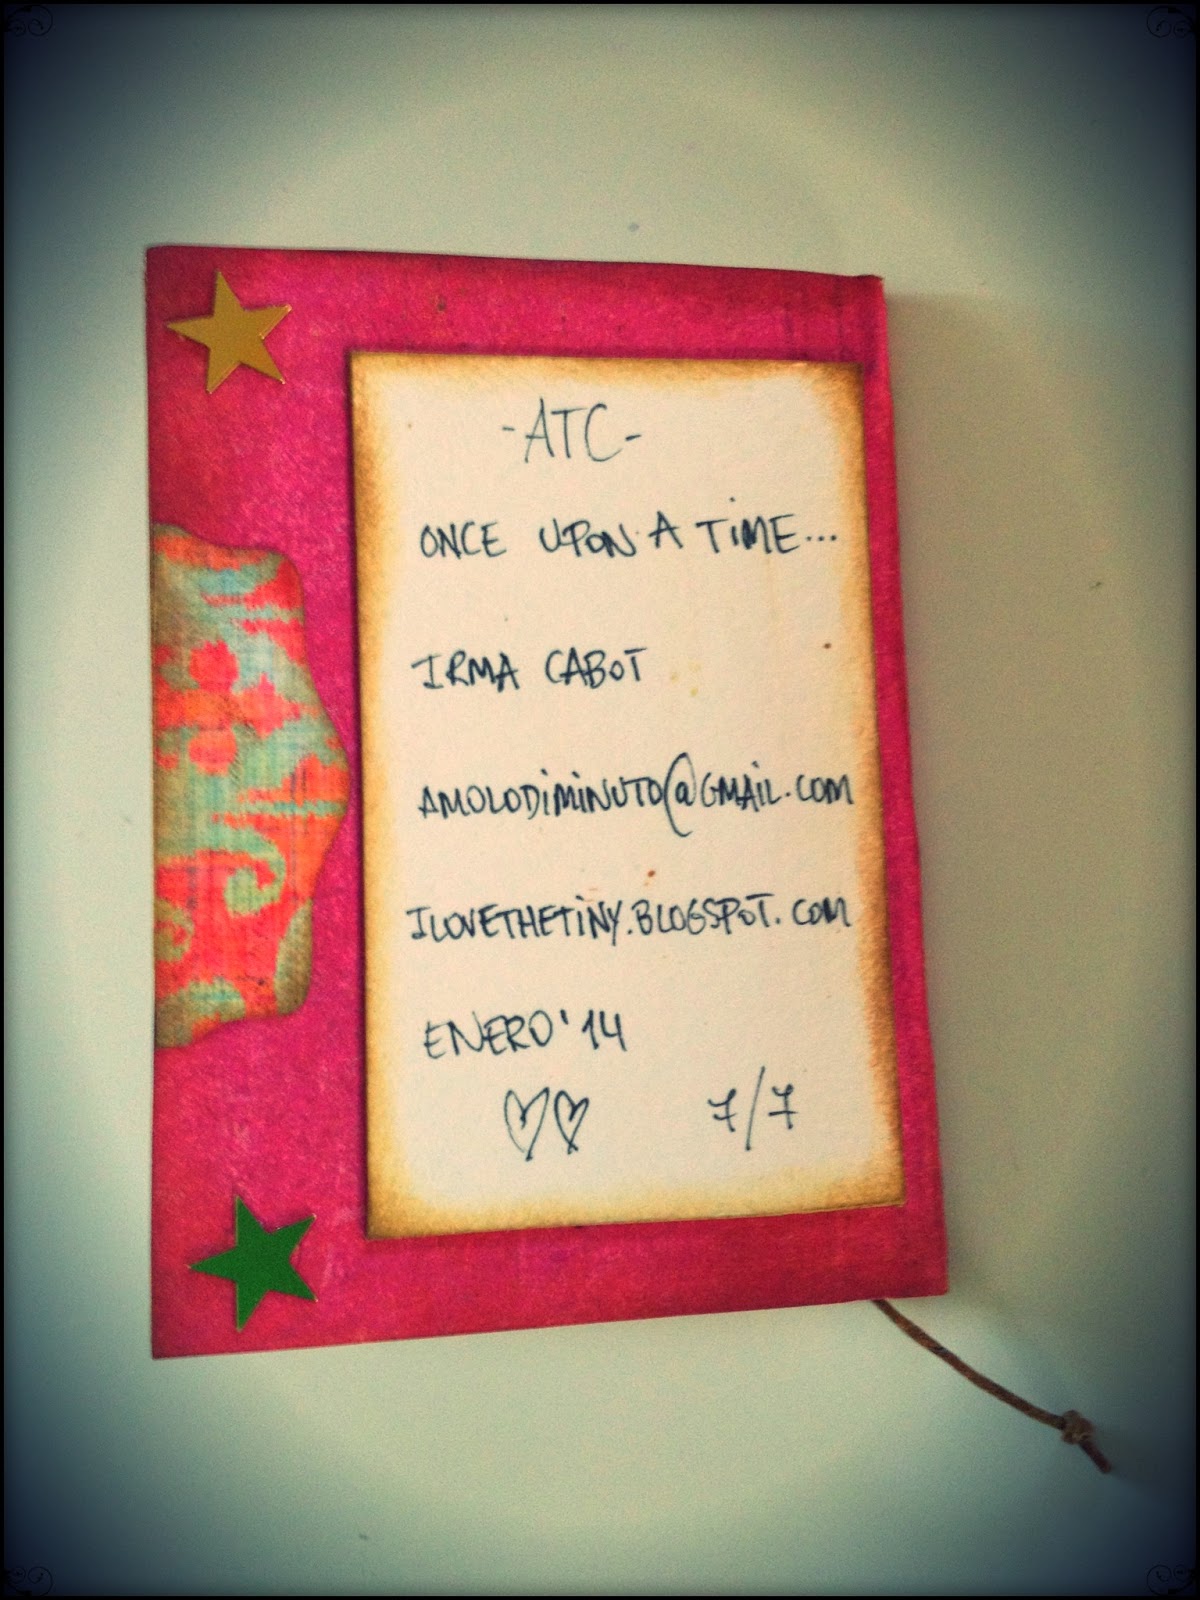 -ATC-
ONCE UPON A TIME...
IRMA CABOT
AMOLODIMINUTO@GMAIL.COM
ILOVETHETINY.BLOGSPOT.COM
ENERO '14
7/7